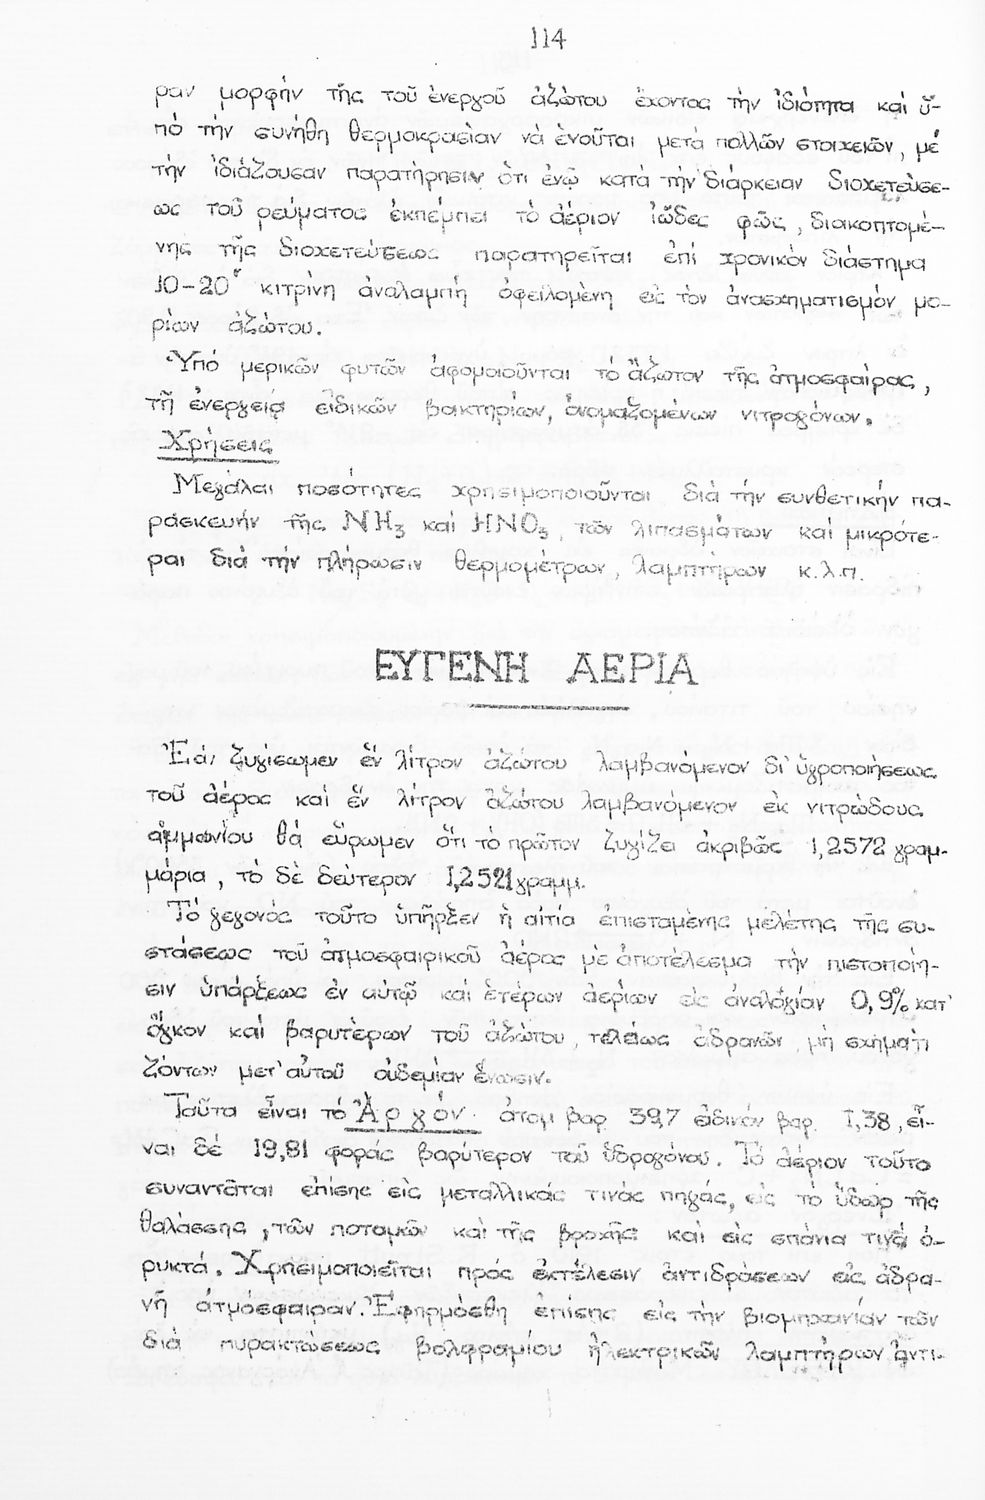 114
ραν μορφήν τῆς τοῦ ἐνεργοῦ ἀζώτου ἔχοντος τὴν ἰδιότητα καὶ ὑ-
πό τὴν συνήθη θερμοκρασίαν νά ἑνοῦται μετά πολλῶν στοιχείων, μέ
τήν ἰδιάζουσαν παρατήρησιν ὅτι ἐνῷ κατα τὴν διάρκειαν διοχετεύσε-
ως τοῦ ρεύματος ἐκπέμπει τό ἀέριον ἰῶδες φῶς, διακοπτομέ-
νης τῆς διοχετεύσεως παρατηρεῖται ἐπί χρονικόν διάστημα
10-20" κιτρίνη ἀναλαμπή ὀφειλομένη εἰς τόν ἀνασχηματισμόν μο-
ρίων ἀζώτου.
Ὑπό μερικῶν φυτῶν ἀφομοιοῦνται τό ἄζωτον τῆς ἀτμοσφαίρας,
τῇ ἐνεργείᾳ εἰδικῶν βακτηρίων, ὀνομαζομένων νιτρογόνων.
Χρήσεις
Μεγάλαι ποσότητες χρησιμοποιοῦνται διά τήν συνθετικήν πα-
ρασκευήν τῆς NH3 καί HNO3, τῶν λιπασμάτων καί μικρότε-
ραι διά τήν πλήρωσιν θερμομέτρων, λαμπτήρων κ.λ.π.
ΕΥΓΕΝΗ ΑΕΡΙΑ
Ἐάν ζυγίσωμεν ἕν λίτρον ἀζώτου λαμβανόμενον δι' ὑγροποιήσεως
τοῦ ἀέρος καί ἕν λίτρον ἀζώτου λαμβανόμενον ἐκ νιτρώδους
ἀμμωνίου θά εὕρωμεν ὅτι τό πρῶτον ζυγίζει ἀκριβῶς 1,2572 γραμ-
μάρια, τό δέ δεύτερον 1,2521 γραμμ.
Τό γεγονός τοῦτο ὑπῆρξεν ἡ αἰτία ἐπισταμένης μελέτης τῆς συ-
στάσεως τοῦ ἀτμοσφαιρικοῦ ἀέρος μέ ἀποτέλεσμα τήν πιστοποίη-
σιν ὑπάρξεως ἐν αὐτῷ καί ἑτέρων ἀερίων εἰς ἀναλογίαν 0,9% κατ'
ὄγκον καί βαρυτέρων τοῦ ἀζώτου, τελείως ἀδρανῶν μή σχηματι
ζόντων μετ' αὐτοῦ οὐδεμίαν ἕνωσιν.
Ταῦτα εἶναι τό Ἀργόν. ἀτομ βαρ 39,7 εἰδικόν βαρ. 1,38, εἶ-
ναι δέ 19,81 φοράς βαρύτερον τοῦ ὑδρογόνου. Τό ἀέριον τοῦτο
συναντᾶται ἐπίσης εἰς μεταλλικάς τινάς πηγάς, εἰς το ὕδωρ τῆς
θαλάσσης, τῶν ποταμῶν καί τῆς βροχῆς καί εἰς σπάνια τινά ὀ-
ρυκτά. Χρησιμοποιεῖται πρός ἐκτέλεσιν ἀντιδράσεων εἰς ἀδρα-
νῆ ἀτμόσφαιραν. Ἐφηρμόσθη ἐπίσης εἰς τήν βιομηχανίαν τῶν
διά πυρακτώσεως βολφραμίου ἠλεκτρικῶν λαμπτήρων ἀντι-